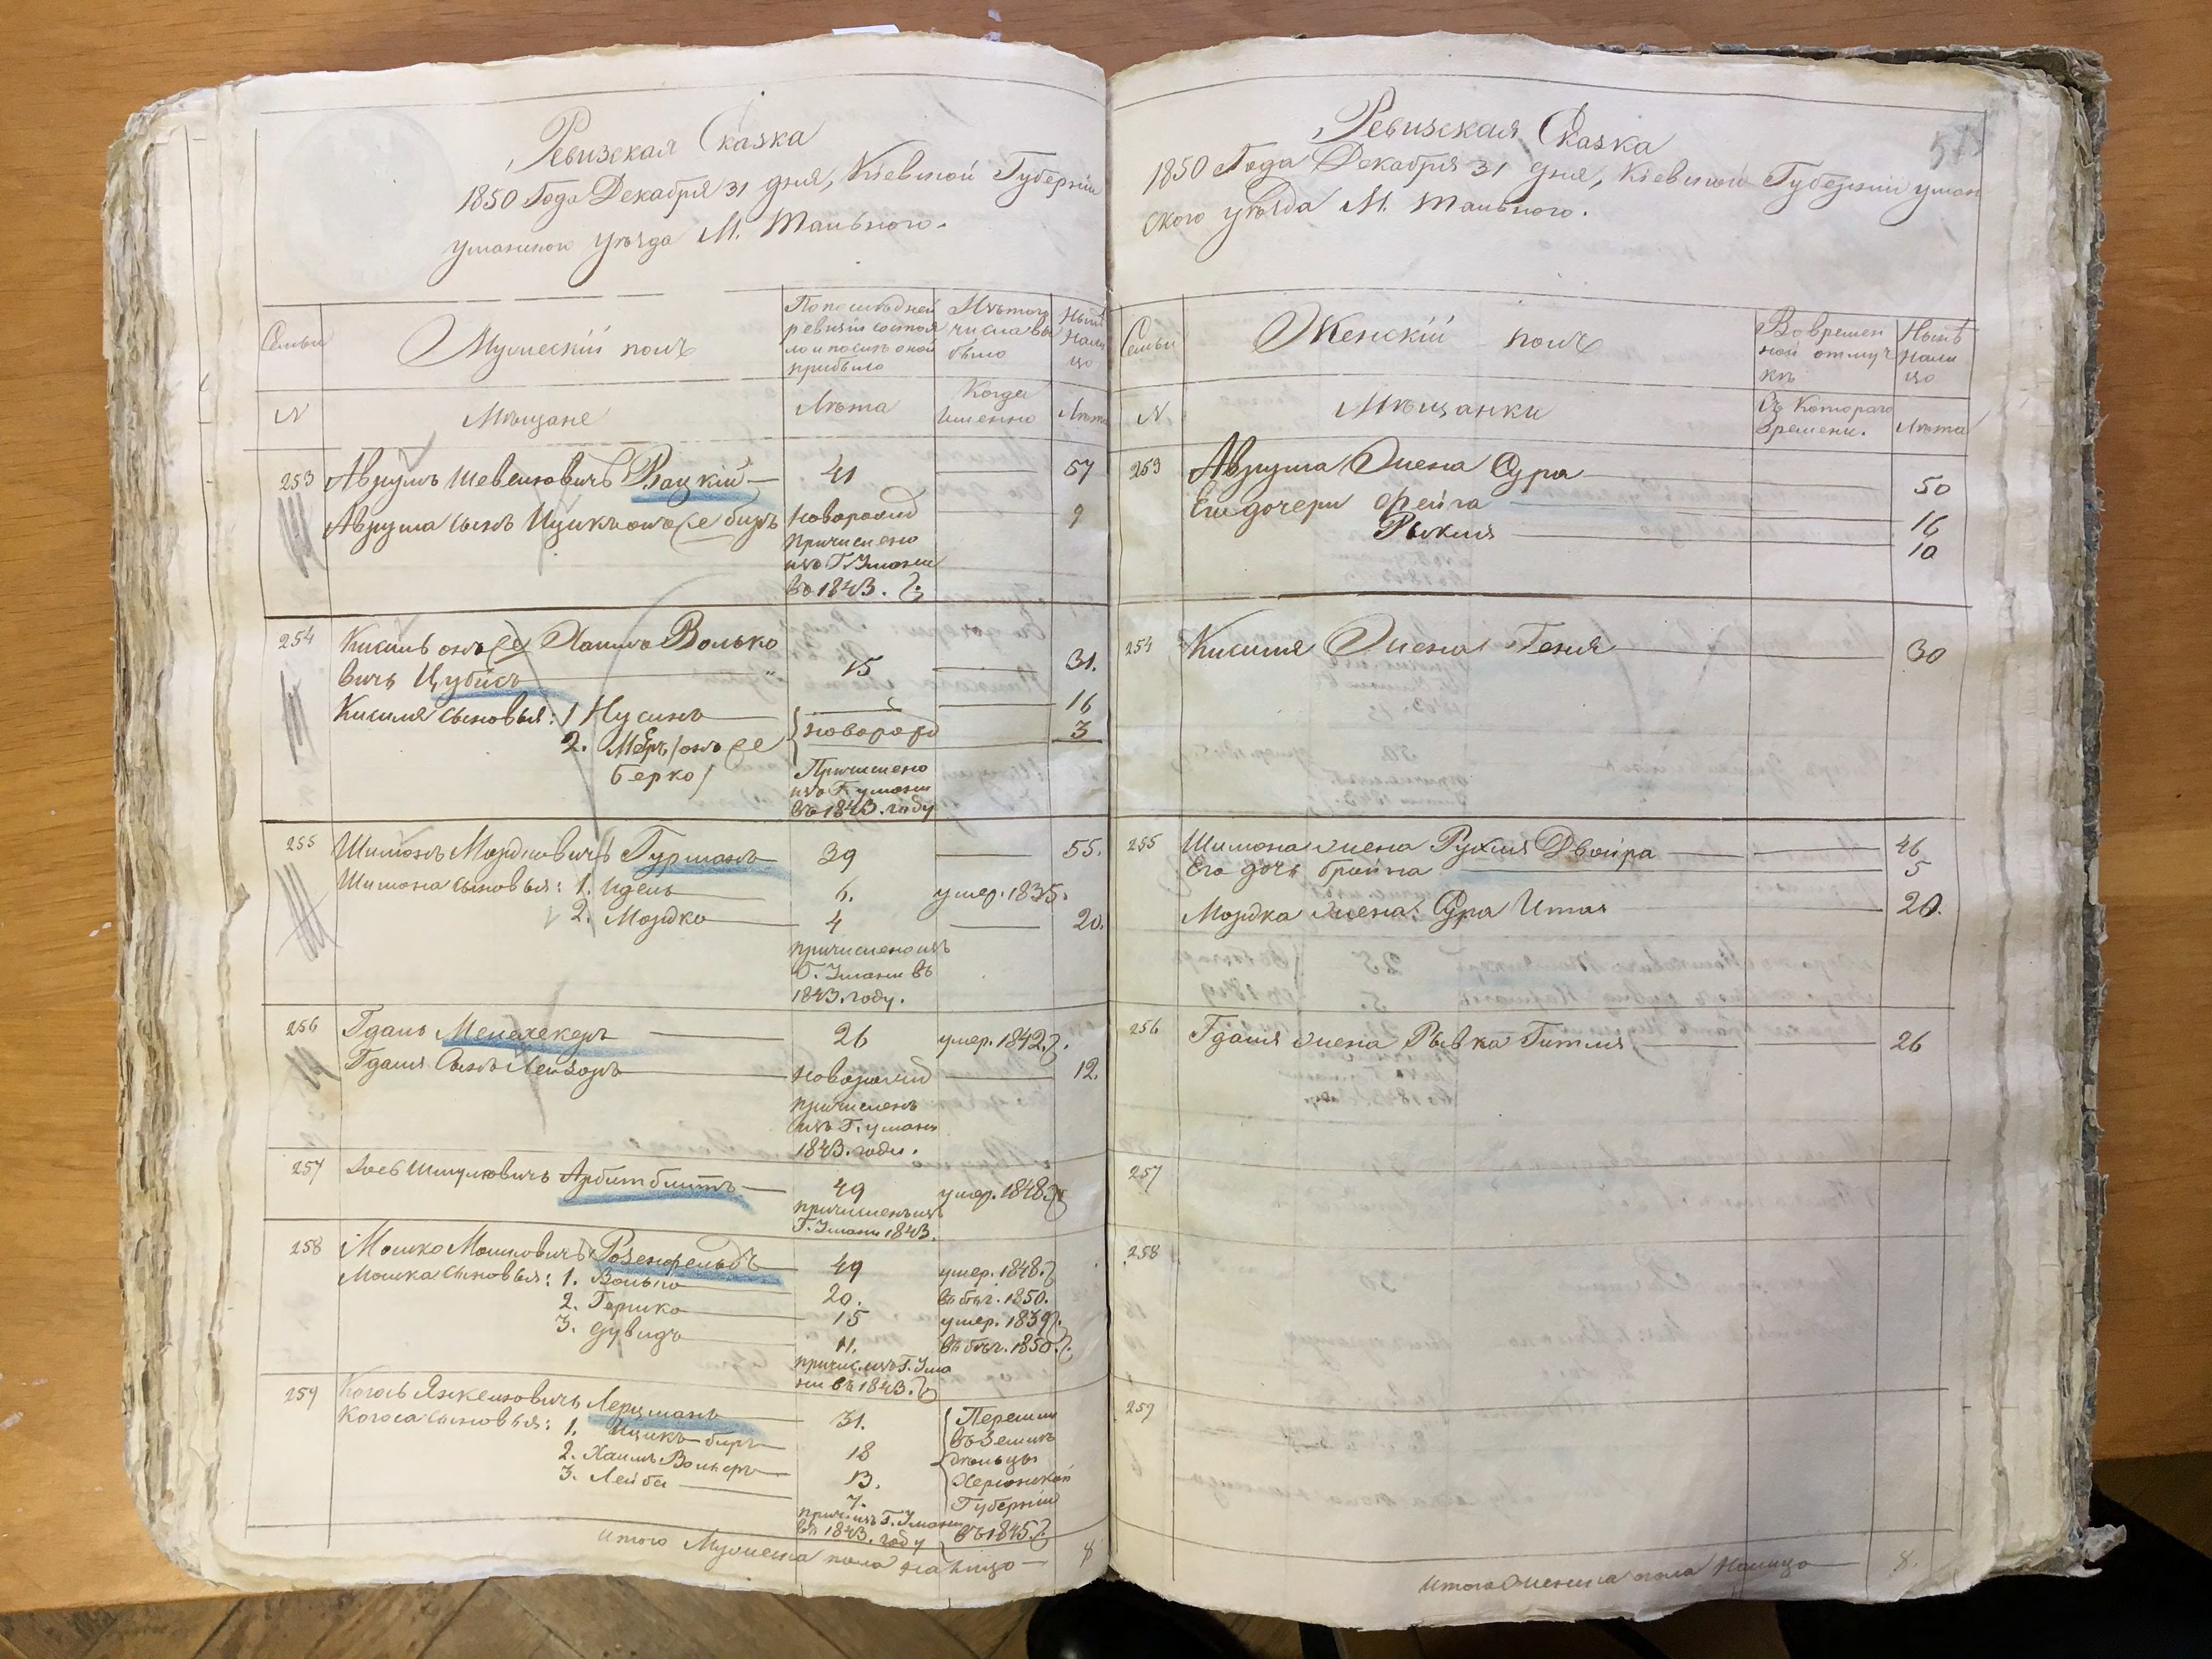 Ревизская Сказка
1850 Года Декабря 31 дня, Кіевской Губерніи
Уманскаго уѣзда М. Тального.
Семьи
Мужескій полъ
По последней
ревизіи состоя
ло и послѣ оной
прибыло
Изъ того
числа вы
было
Нынѣ
нали
цо
N
Мѣщане
Лѣта
Когда
именно
Лѣта
253 Аврумъ Шевелювичъ Рацкій 41 57
Аврума сынъ Ицикъ онъ же биръ новорожд 9
причислено
изъ Г. Умани
въ 1843.
254 Кисиль онъ же Хаимъ Волько
вичъ Цубисъ 15 31.
Кисиля сыновья: 1 Нусинъ 16
2. Меръ (онъ же новорожд 3
Берко)
Причислено
изъ Г. Умани
въ 1843. году
255 Шимонъ Мордковичъ Гурманъ 39 55.
Шимона сыновья: 1. Идель 6. умер. 1835.
2. Мордко 4 20.
причислено изъ
Г. Умани въ
1843. году.
256 Гдаль Менехекеръ 26 умер. 1842.
Гдаля Сынъ Лейзоръ новорожд 12.
причисленъ
изъ Г. Умани
1843. году.
257 Шмулювичъ Арбитблитъ 49 умер. 1848.
причисленъ изъ
Г. Умани 1843.
258 Мошко Мошковичъ Розенфельдъ 49 умер. 1848.
Мошка сыновья: 1. Волько 20. въ бѣг. 1850.
2. Гершко 15 умер. 1839.
3. Дувидъ 11. въ бѣг. 1850.
причис. изъ Г. Ума
ни въ 1843.
259 Когосъ Янкелювичъ Лерцманъ 31. Перешли
Когоса сыновья: 1. Ицикъ биръ 18 въ Земле
2. Хаимъ Вольеръ 13. дѣльцы
3. Лейба 7. Херсонской
Губерніи
причи. изъ Г. Умани
въ 1843. году въ 1845.
Итого Мужеска пола на лицо 8
Ревизская Сказка
1850 Года Декабря 31 дня, Кіевской Губерніи Уман
ского уѣзда М. Тального.
Семьи
Женскій полъ
Во времен
ной отлуч
кѣ
Нынѣ
нали
цо
N
Мѣщанки
Съ котораго
времени.
Лѣта
253 Аврума Жена Сура 50
Его дочери Фейга 16
Рыкля 10
254 Кисиля Жена Геня 30
255 Шимона жена Рухля Двойра 46
Его дочь брайна 5
Мордка жена Сура Итая 20.
256 Гдаля жена Рывка Гитля 26
257
258
259
Итого Женска пола Налицо 8.